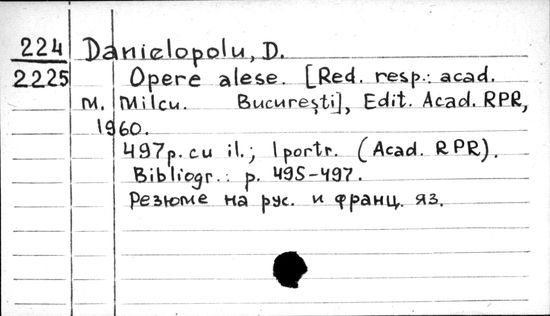 224 Danielopolu, D.
2225 Opere alese. [Red. resp.: acad.
M. Milcu. București], Edit. Acad. RPR,
1960.
497p. cu il.; 1 portr. (Acad. RPR).
Bibliogr.: p. 495-497.
Резюме на рус. и франц. яз.